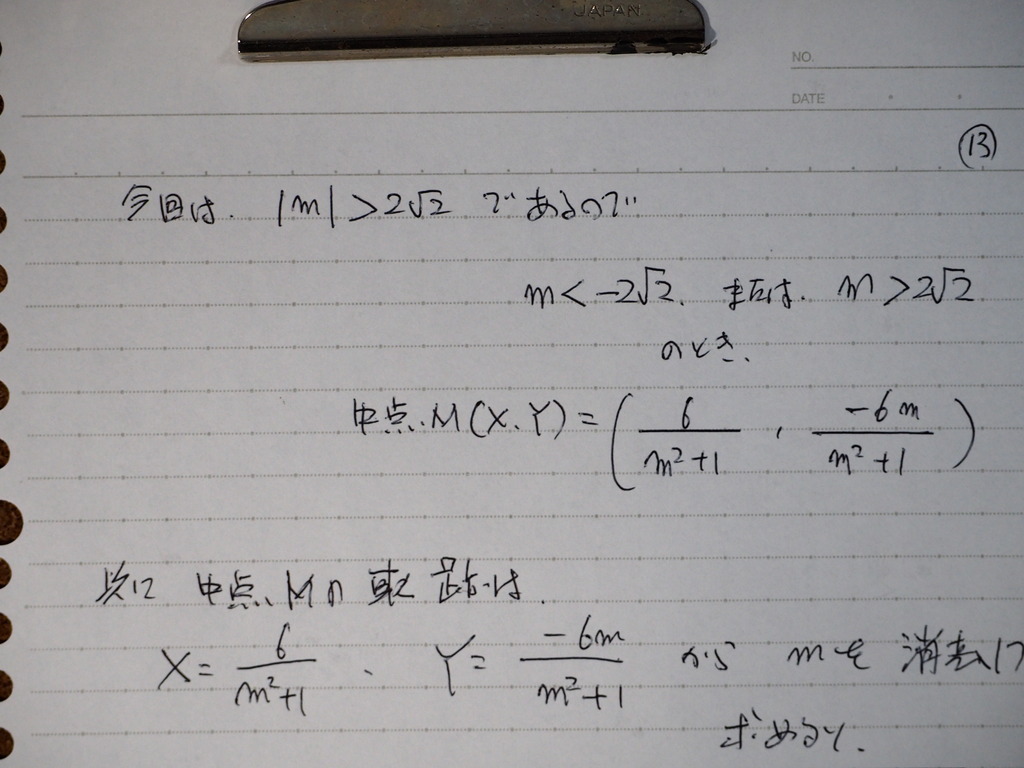 JAPAN
NO.
DATE
⑬
今回は. |m| > 2√2 であるので
m < -2√2. または. m > 2√2
のとき、
中点M(X, Y) = (6/(m²+1) , -6m/(m²+1))
次に 中点Mの 軌跡は、
X = 6/(m²+1) 、 Y = -6m/(m²+1) から mを 消去して
求めると、